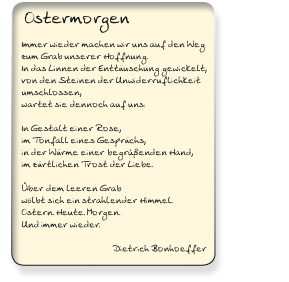 Ostermorgen
Immer wieder machen wir uns auf den Weg
zum Grab unserer Hoffnung.
In das Linnen der Enttäuschung gewickelt,
von den Steinen der Unwiderruflichkeit
umschlossen,
wartet sie dennoch auf uns:
In Gestalt einer Rose,
im Tonfall eines Gesprächs,
in der Wärme einer begrüßenden Hand,
im zärtlichen Trost der Liebe.
Über dem leeren Grab
wölbt sich ein strahlender Himmel.
Ostern. Heute. Morgen.
Und immer wieder.
Dietrich Bonhoeffer